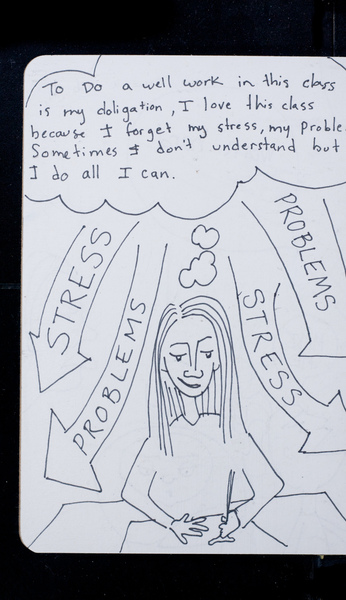 To Do a well work in this class
is my doligation, I love this class
because I forget my stress, my Proble
Sometimes I don't understand but
I do all I can.
STRESS
PROBLEMS
STRESS
PROBLEMS